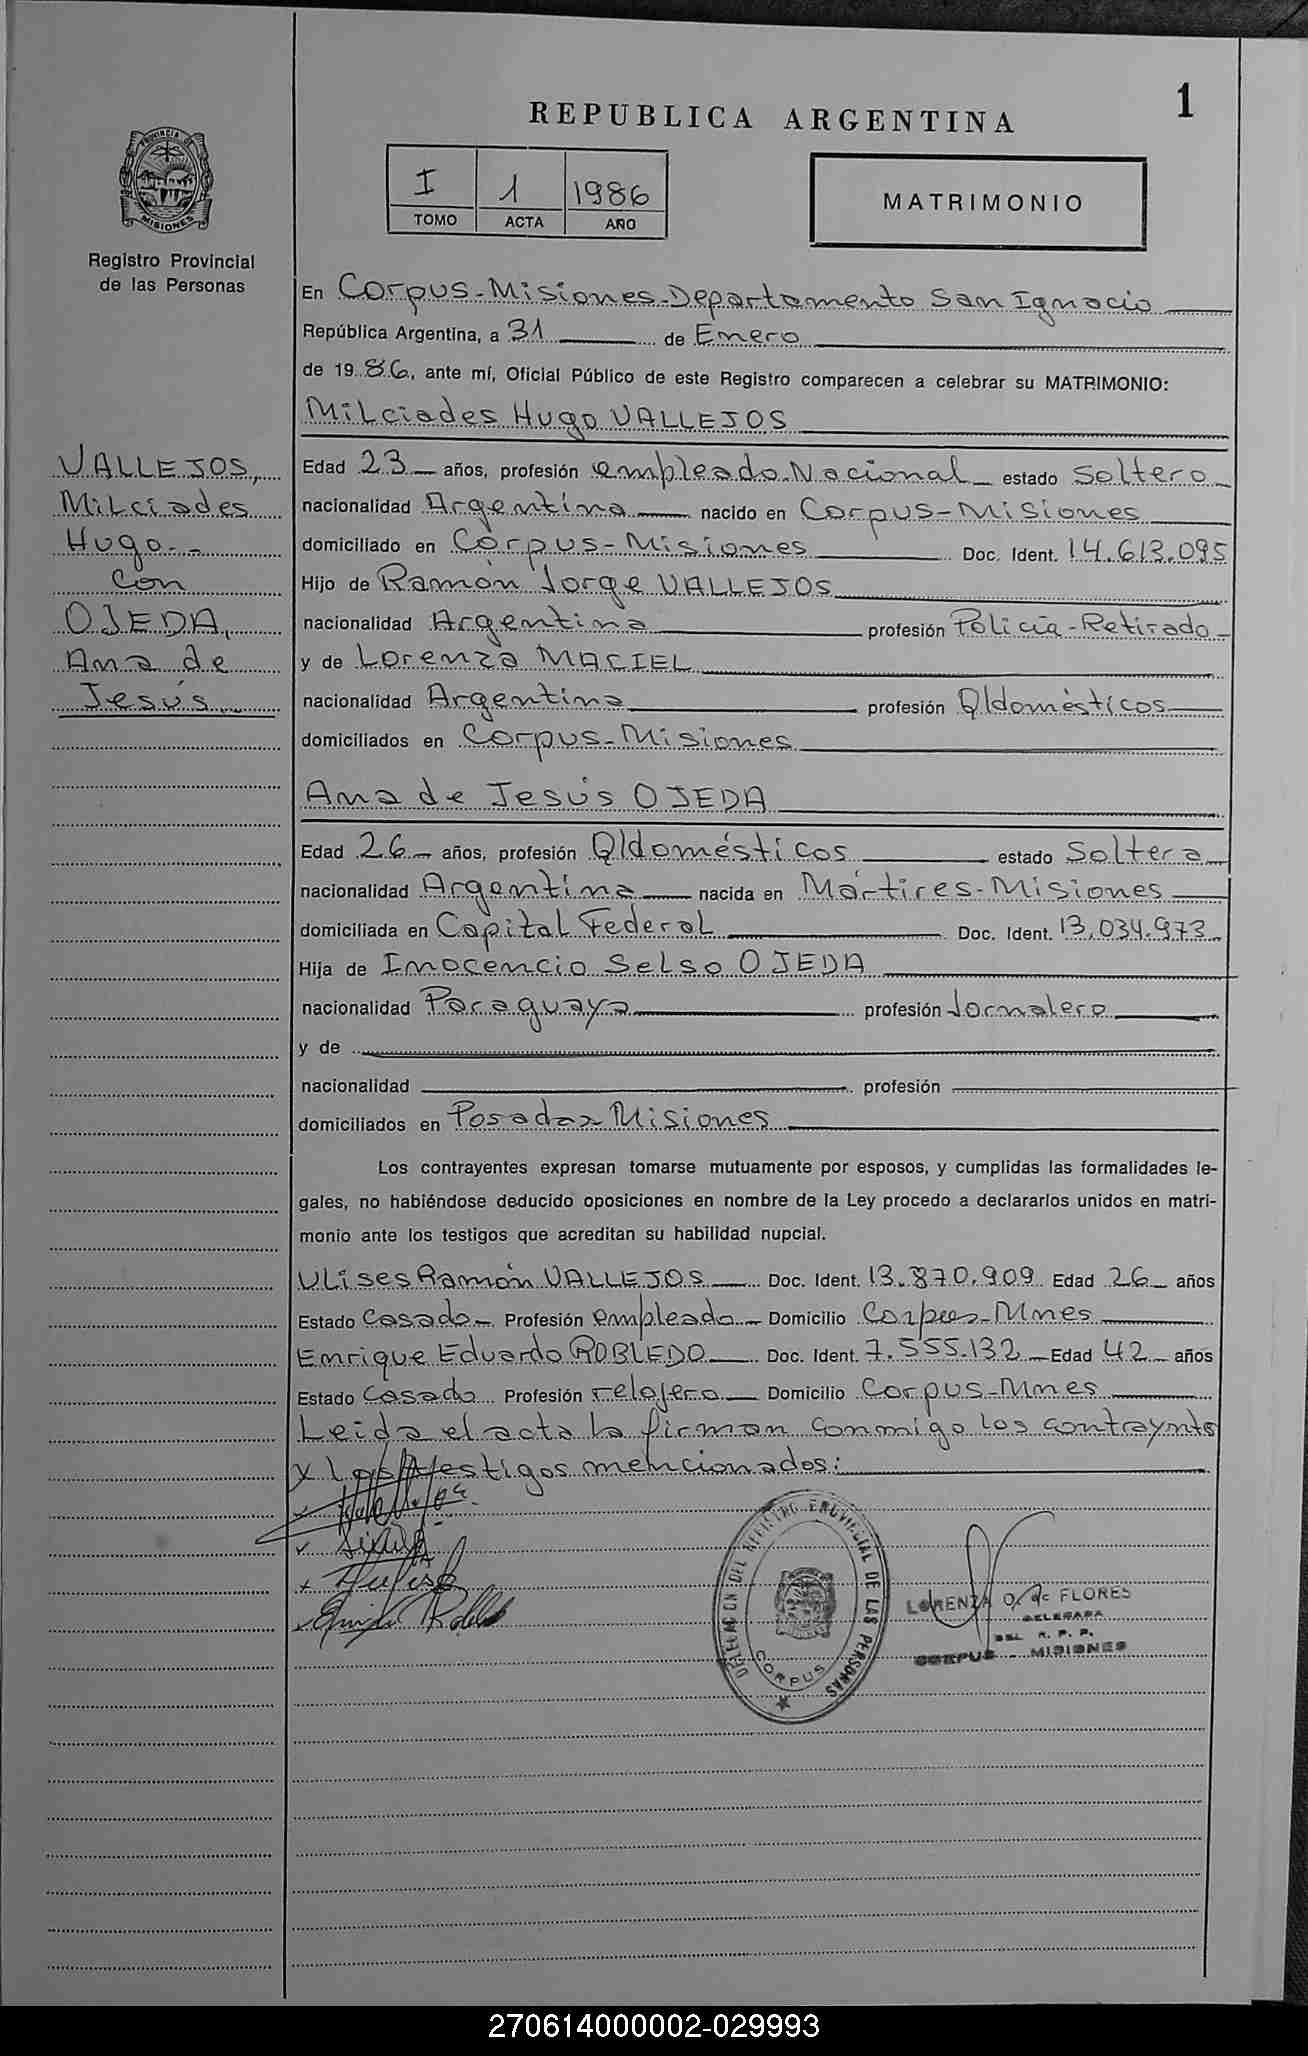 1
REPUBLICA ARGENTINA
I 1 1986
TOMO ACTA AÑO
MATRIMONIO
PROVINCIA DE
MISIONES
Registro Provincial
de las Personas
En Corpus-Misiones-Departamento San Ignacio
República Argentina, a 31 de Enero
de 1986, ante mí, Oficial Público de este Registro comparecen a celebrar su MATRIMONIO:
Milciades Hugo VALLEJOS
VALLEJOS,
Milciades
Hugo.-
con
OJEDA,
Ana de
Jesús.
Edad 23 años, profesión empleado Nacional estado soltero
nacionalidad Argentina nacido en Corpus-Misiones
domiciliado en Corpus-Misiones Doc. Ident. 14.613.095
Hijo de Ramón Jorge VALLEJOS
nacionalidad Argentina profesión Policía-Retirado
y de Lorenza MACIEL
nacionalidad Argentina profesión Q/domésticos
domiciliados en Corpus-Misiones
Ana de Jesús OJEDA
Edad 26 años, profesión Q/domésticos estado soltera
nacionalidad Argentina nacida en Mártires-Misiones
domiciliada en Capital Federal Doc. Ident. 13.034.973
Hija de Inocencio Selso OJEDA
nacionalidad Paraguaya profesión Jornalero
y de
nacionalidad profesión
domiciliados en Posadas Misiones
Los contrayentes expresan tomarse mutuamente por esposos, y cumplidas las formalidades le-
gales, no habiéndose deducido oposiciones en nombre de la Ley procedo a declararlos unidos en matri-
monio ante los testigos que acreditan su habilidad nupcial.
Ulises Ramón VALLEJOS Doc. Ident. 13.870.909 Edad 26 años
Estado Casado Profesión empleado Domicilio Corpus-Mnes
Enrique Eduardo ROBLEDO Doc. Ident. 7.555.132 Edad 42 años
Estado Casado Profesión relojero Domicilio Corpus-Mnes
Leída el acta la firman conmigo los contraynts
y los testigos mencionados:
DELEGACION DEL REGISTRO PROVINCIAL DE LAS PERSONAS
CORPUS
LORENZA O. de FLORES
DELEGADA
DEL R. P. P.
CORPUS - MISIONES
270614000002-029993